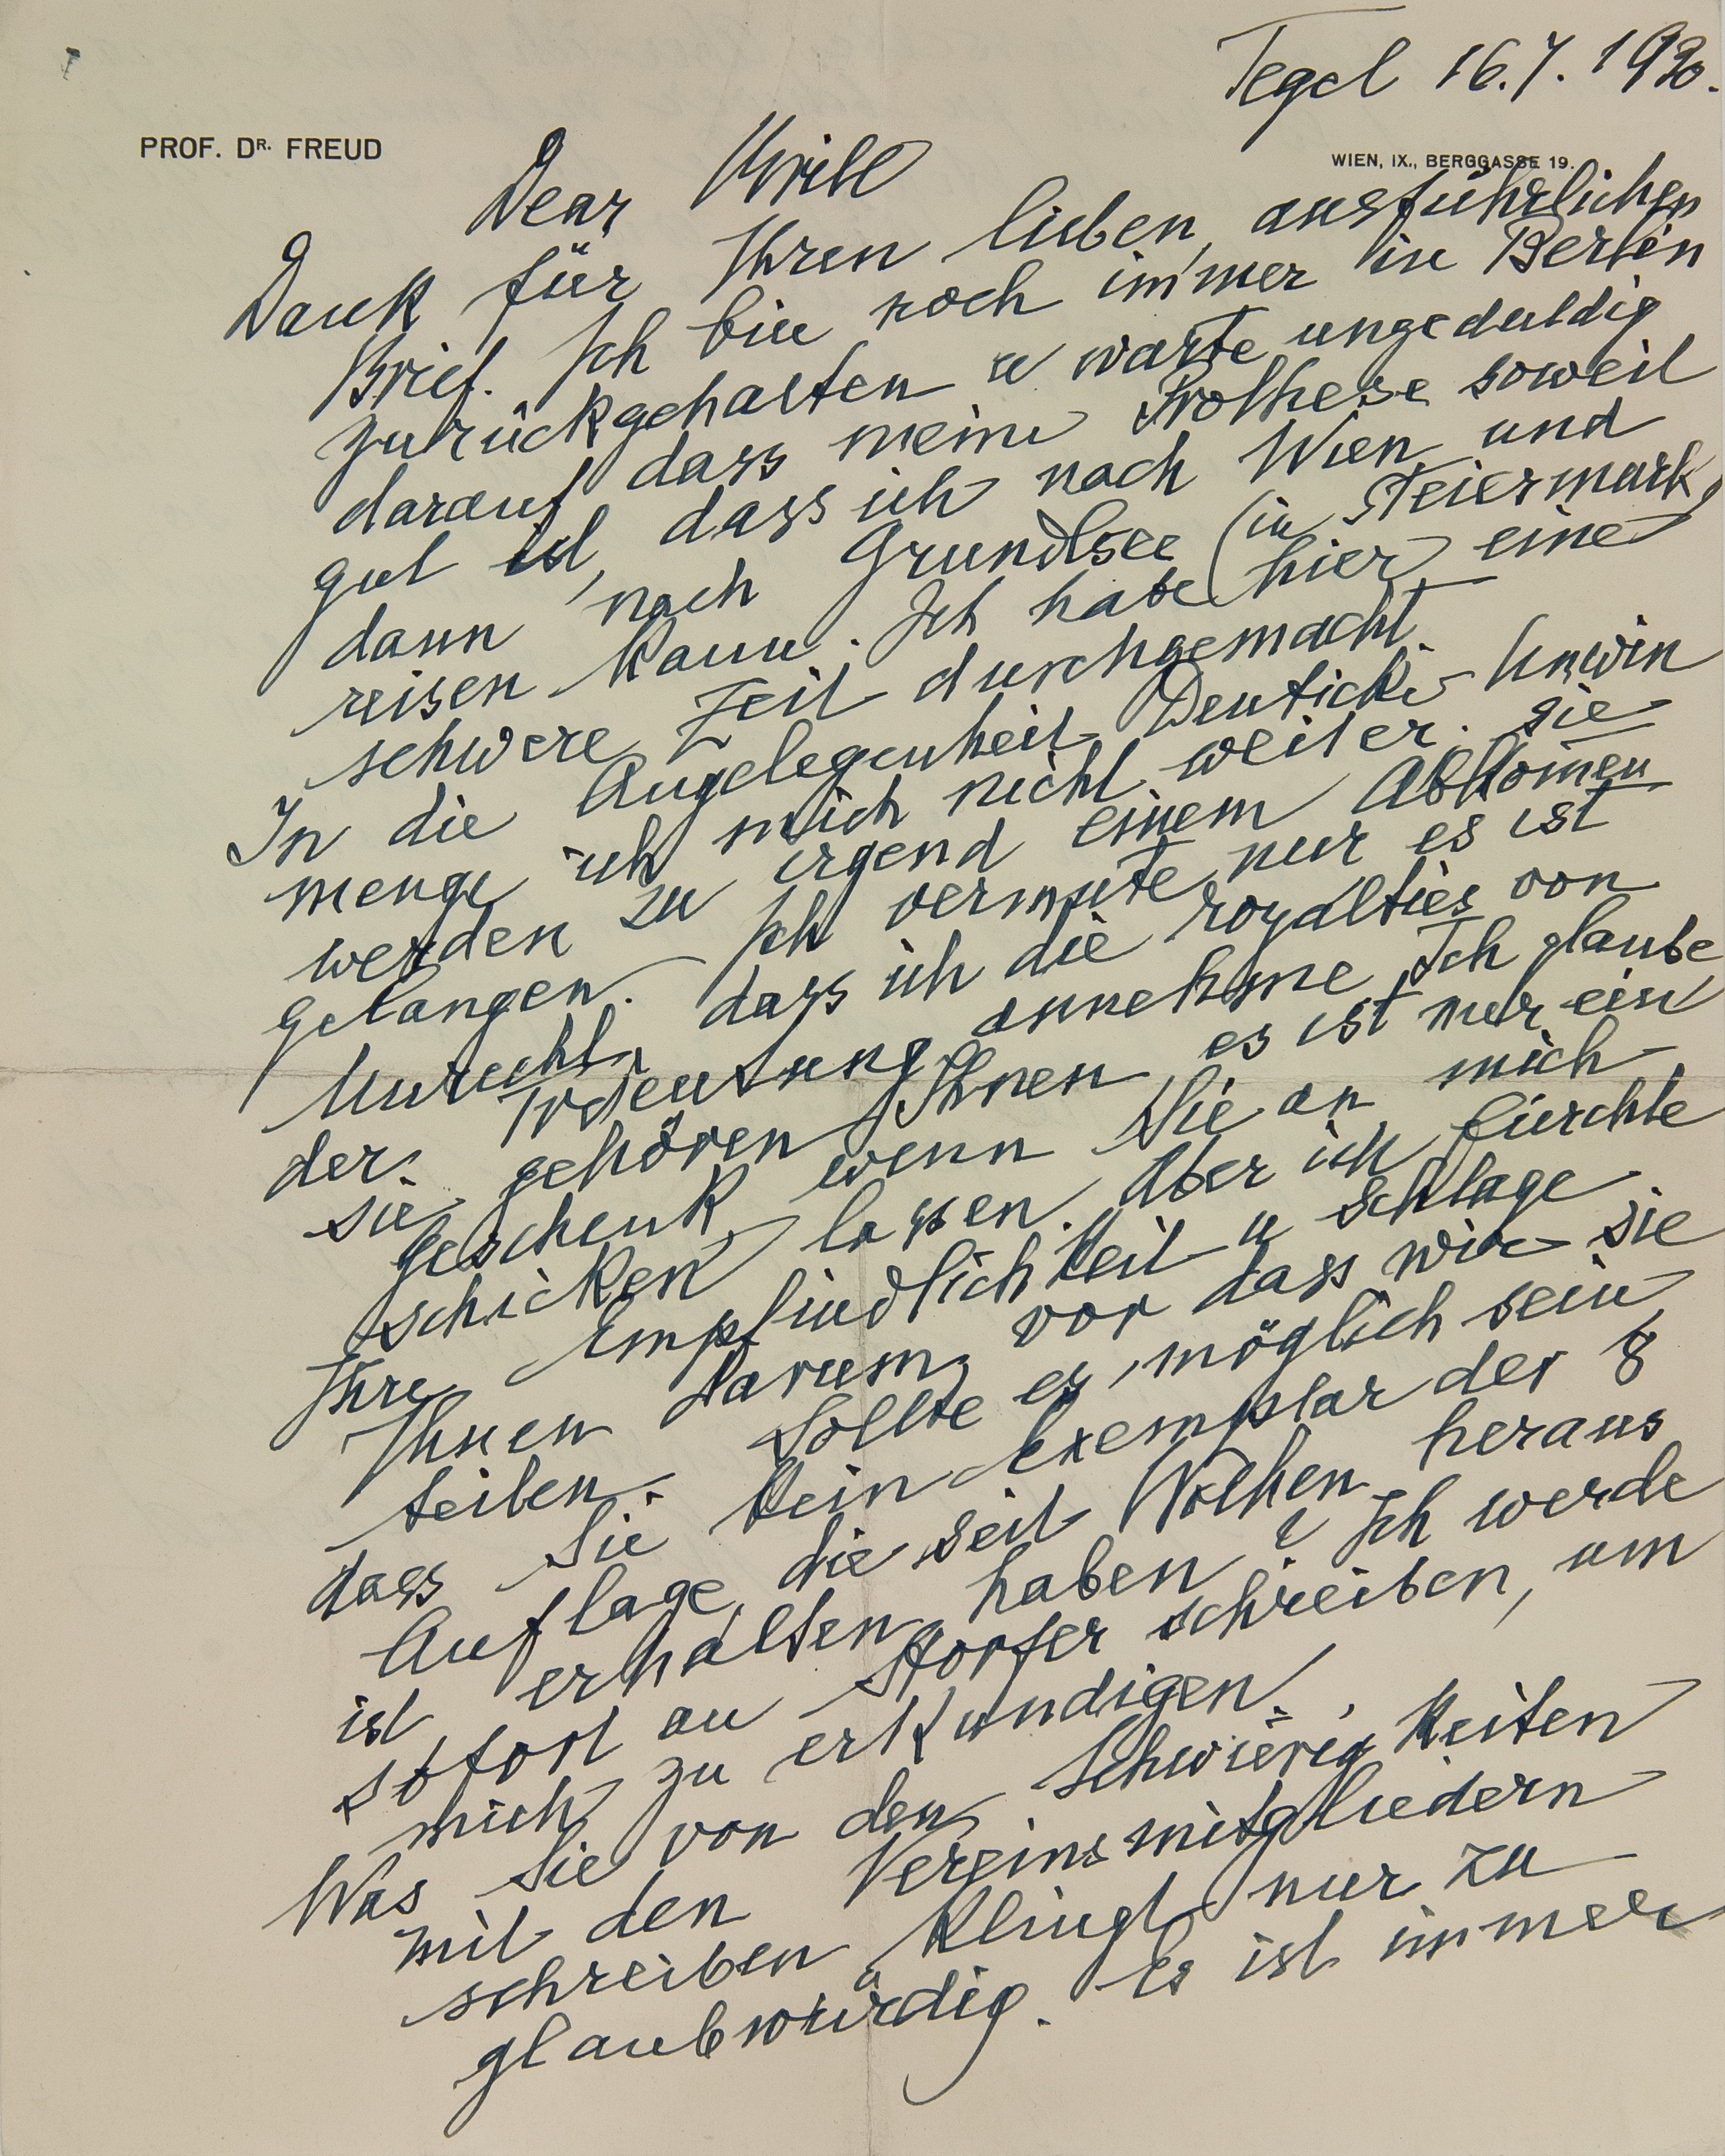 Tegel 16.7.1930.
PROF. DR. FREUD
WIEN, IX., BERGGASSE 19.
Dear Brill
Dank für Ihren lieben, ausführlichen
Brief. Ich bin noch immer in Berlin
zurückgehalten u warte ungeduldig
darauf dass meine Prothese soweit
gut ist, dass ich nach Wien und
dann nach Grundlsee (in Steiermark)
reisen kann. Ich habe hier eine
schwere Zeit durchgemacht.
In die Angelegenheit Deuticke - Unwin
menge ich mich nicht weiter. Sie
werden zu irgend einem Abkommen
gelangen. Ich vermute nur es ist
Unrecht, dass ich die royalties von
der Trdeutung annehme. Ich glaube
sie gehören Ihnen, es ist nur ein
Geschenk wenn Sie an mich
schicken lassen. Aber ich fürchte
Ihre Empfindlichkeit u schlage
Ihnen darum vor dass wir sie
teilen. Sollte es möglich sein,
dass Sie kein Exemplar der 8
Auflage, die seit Wochen heraus
ist erhalten haben? Ich werde
sofort an Storfer schreiben, um
mich zu erkundigen.
Was Sie von den Schwierigkeiten
mit den Vereinsmitgliedern
schreiben klingt nur zu
glaubwürdig. Es ist immer